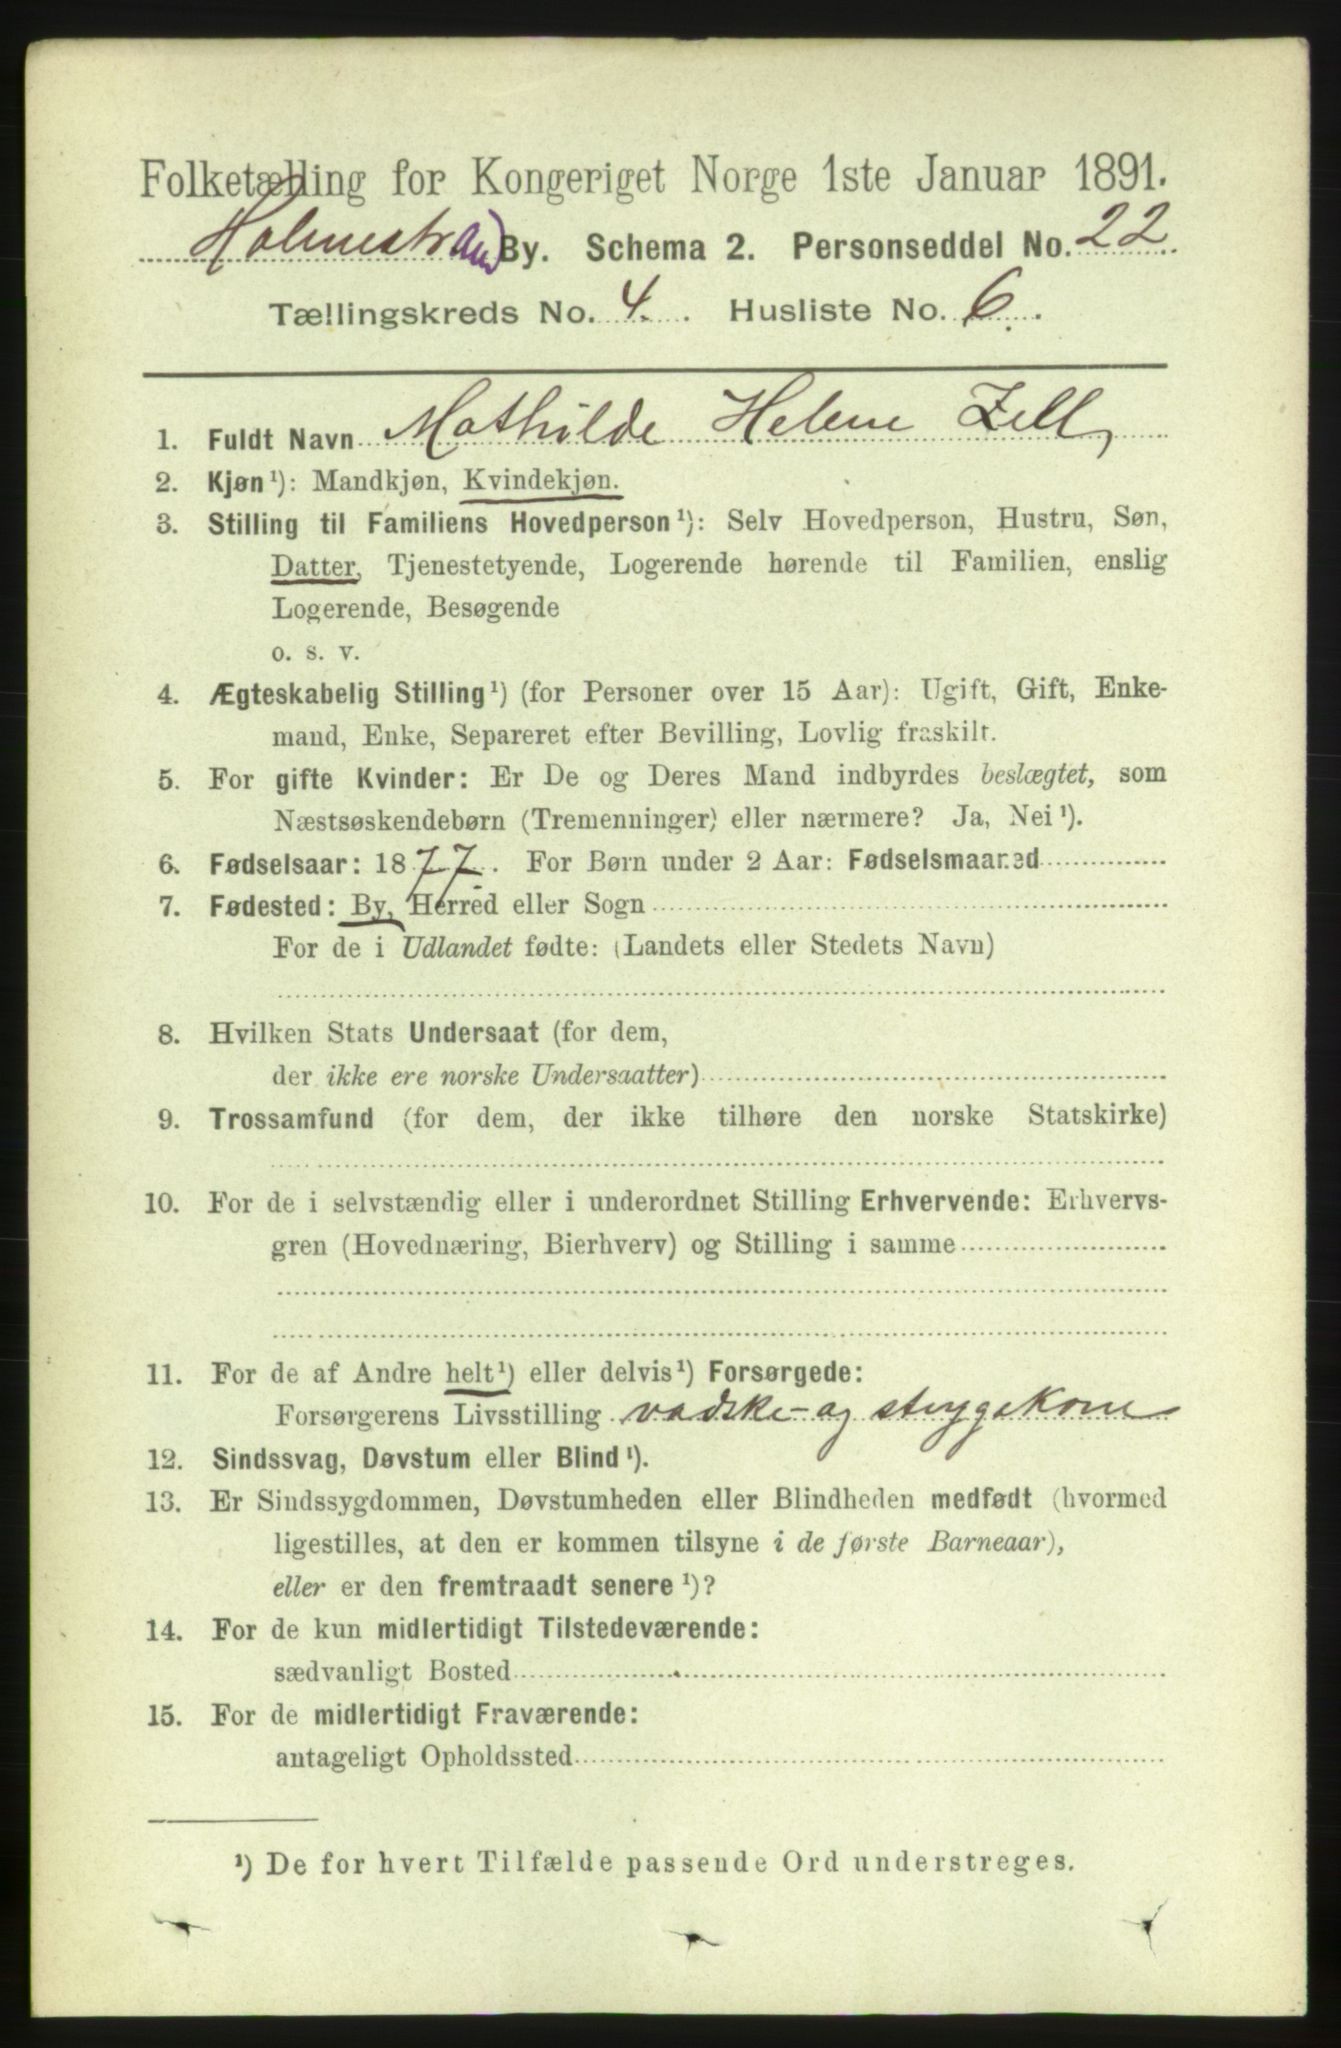 Folketælling for Kongeriget Norge 1ste Januar 1891.
Holmestrand By. Schema 2. Personseddel No. 22.
Tællingskreds No. 4. Husliste No. 6.
1. Fuldt Navn Mathilde Helene Zell,
2. Kjøn ¹): Mandkjøn, Kvindekjøn.
3. Stilling til Familiens Hovedperson ¹): Selv Hovedperson, Hustru, Søn,
Datter, Tjenestetyende, Logerende hørende til Familien, enslig
Logerende, Besøgende
o. s. v.
4. Ægteskabelig Stilling ¹) (for Personer over 15 Aar): Ugift, Gift, Enke-
mand, Enke, Separeret efter Bevilling, Lovlig fraskilt.
5. For gifte Kvinder: Er De og Deres Mand indbyrdes beslægtet, som
Næstsøskendebørn (Tremenninger) eller nærmere? Ja, Nei ¹).
6. Fødselsaar: 1877. For Børn under 2 Aar: Fødselsmaaned
7. Fødested: By, Herred eller Sogn
For de i Udlandet fødte: (Landets eller Stedets Navn)
8. Hvilken Stats Undersaat (for dem,
der ikke ere norske Undersaatter)
9. Trossamfund (for dem, der ikke tilhøre den norske Statskirke)
10. For de i selvstændig eller i underordnet Stilling Erhvervende: Erhvervs-
gren (Hovednæring, Bierhverv) og Stilling i samme
11. For de af Andre helt ¹) eller delvis ¹) Forsørgede:
Forsørgerens Livsstilling vadske- og strygekone
12. Sindssvag, Døvstum eller Blind ¹).
13. Er Sindssygdommen, Døvstumheden eller Blindheden medfødt (hvormed
ligestilles, at den er kommen tilsyne i de første Barneaar),
eller er den fremtraadt senere ¹)?
14. For de kun midlertidigt Tilstedeværende:
sædvanligt Bosted
15. For de midlertidigt Fraværende:
antageligt Opholdssted
¹) De for hvert Tilfælde passende Ord understreges.